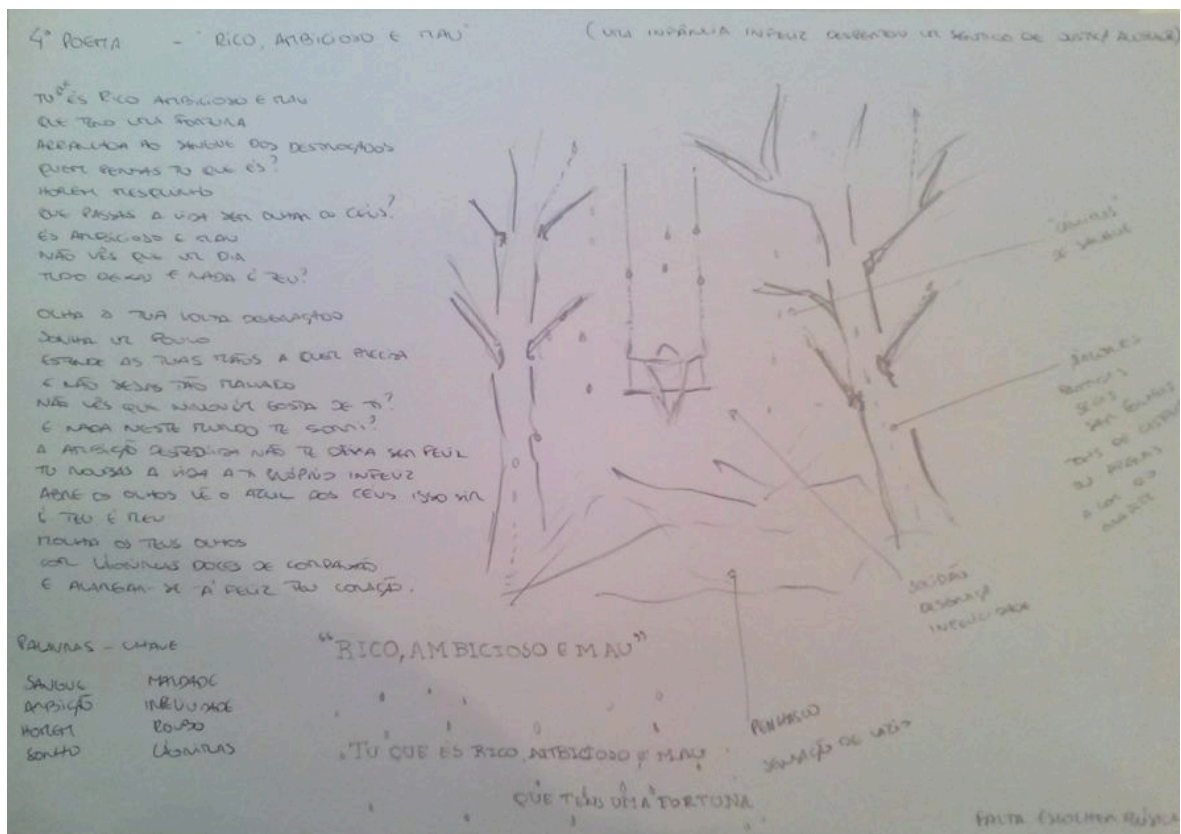 4º POEMA - "RICO, AMBICIOSO E MAU" (UMA INFÂNCIA INFELIZ DESPERTOU UM SENTIDO DE
TU QUE ÉS RICO AMBICIOSO E MAU
QUE TENS UMA FORTUNA
ARRANCADA AO SANGUE DOS DESTROÇADOS
QUEM PENSAS TU QUE ÉS?
HOMEM MESQUINHO
QUE PASSAS A VIDA SEM OLHAR OS CÉUS?
ÉS AMBICIOSO E MAU
NÃO VÊS QUE UM DIA
TUDO DEIXAS E NADA É TEU?
OLHA À TUA VOLTA DESGRAÇADO
SONHA UM POUCO
ESTENDE AS TUAS MÃOS A QUEM PRECISA
E NÃO SEJAS TÃO MALVADO
NÃO VÊS QUE NINGUÉM GOSTA DE TI?
E NADA NESTE MUNDO TE SORRI?
A AMBIÇÃO DESMEDIDA NÃO TE DEIXA SER FELIZ
TU ROUBAS A VIDA A TI PRÓPRIO INFELIZ
ABRE OS OLHOS VÊ O AZUL DOS CEUS ISSO SIM
É TEU E MEU
MOLHA OS TEUS OLHOS
COM LÁGRIMAS DOCES DE COMPAIXÃO
E ALARGAR-SE Á FELIZ TEU CORAÇÃO.
PALAVRAS - CHAVE
SANGUE MALDADE
AMBIÇÃO INFELICIDADE
HOMEM ROUBO
SONHO LÁGRIMAS
DE SANGUE
ÁRVORES
SECAS
SEM FOLHAS
SOLIDÃO
DESGRAÇA
INFELICIDADE
PENHASCO
SENSAÇÃO DE VAZIO
"RICO, AMBICIOSO E MAU"
TU QUE ÉS RICO, AMBICIOSO E MAU
QUE TENS UMA FORTUNA
FALTA ESCOLHER MÚSICA